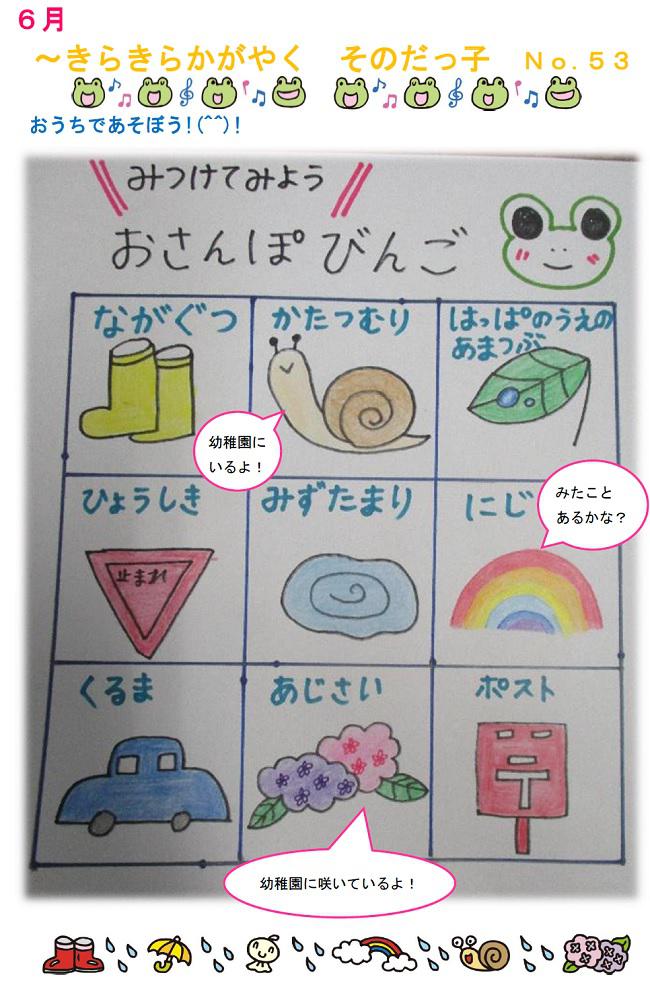 ６月
～きらきらかがやく　そのだっ子　Ｎｏ.５３
おうちであそぼう!(^^)!
みつけてみよう
おさんぽびんご
ながぐつ
かたつむり
はっぱのうえの
あまつぶ
幼稚園に
いるよ！
ひょうしき
止まれ
みずたまり
にじ
みたこと
あるかな？
くるま
あじさい
ポスト
幼稚園に咲いているよ！